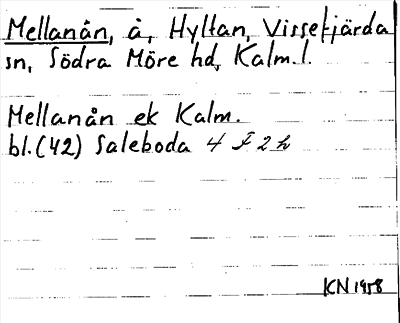 Mellanån, å, Hyltan, Vissefjärda
sn, Södra Möre hd, Kalm. l.
Mellanån ek Kalm.
bl. (42) Saleboda 4 F 2 h
KN 1958